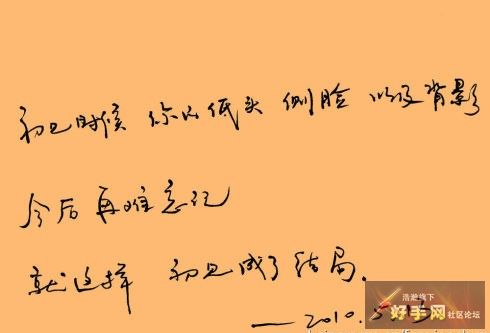 初见时候 你的低头 侧脸 以及背影
今后再难忘记
就这样 初见成了结局.
—2010.5.13.
浩瀚旗下
好手网 社区论坛